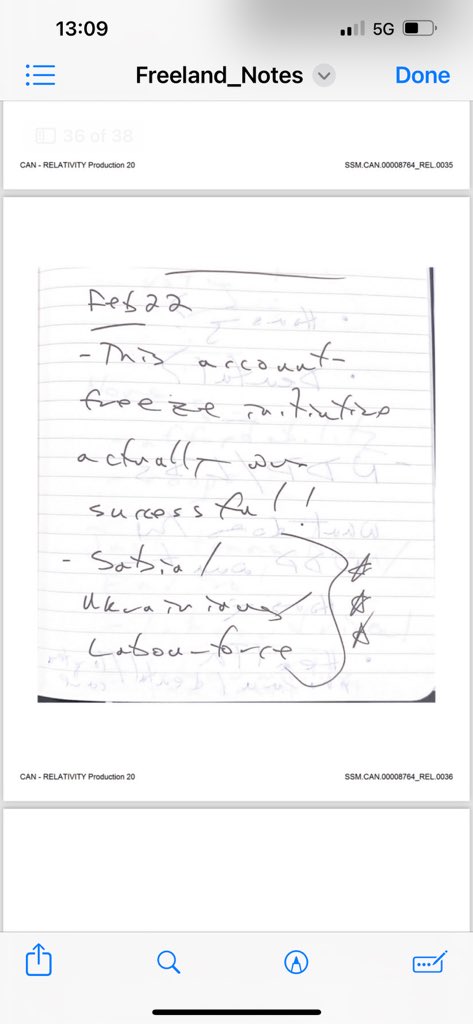 13:09
5G
Freeland_Notes
Done
36 of 38
CAN - RELATIVITY Production 20
SSM.CAN.00008764_REL.0035
Feb 22
- This account-
freeze initiative
actually was
successful!
- Sabia/
Ukrainians/
Labour-force
CAN - RELATIVITY Production 20
SSM.CAN.00008764_REL.0036